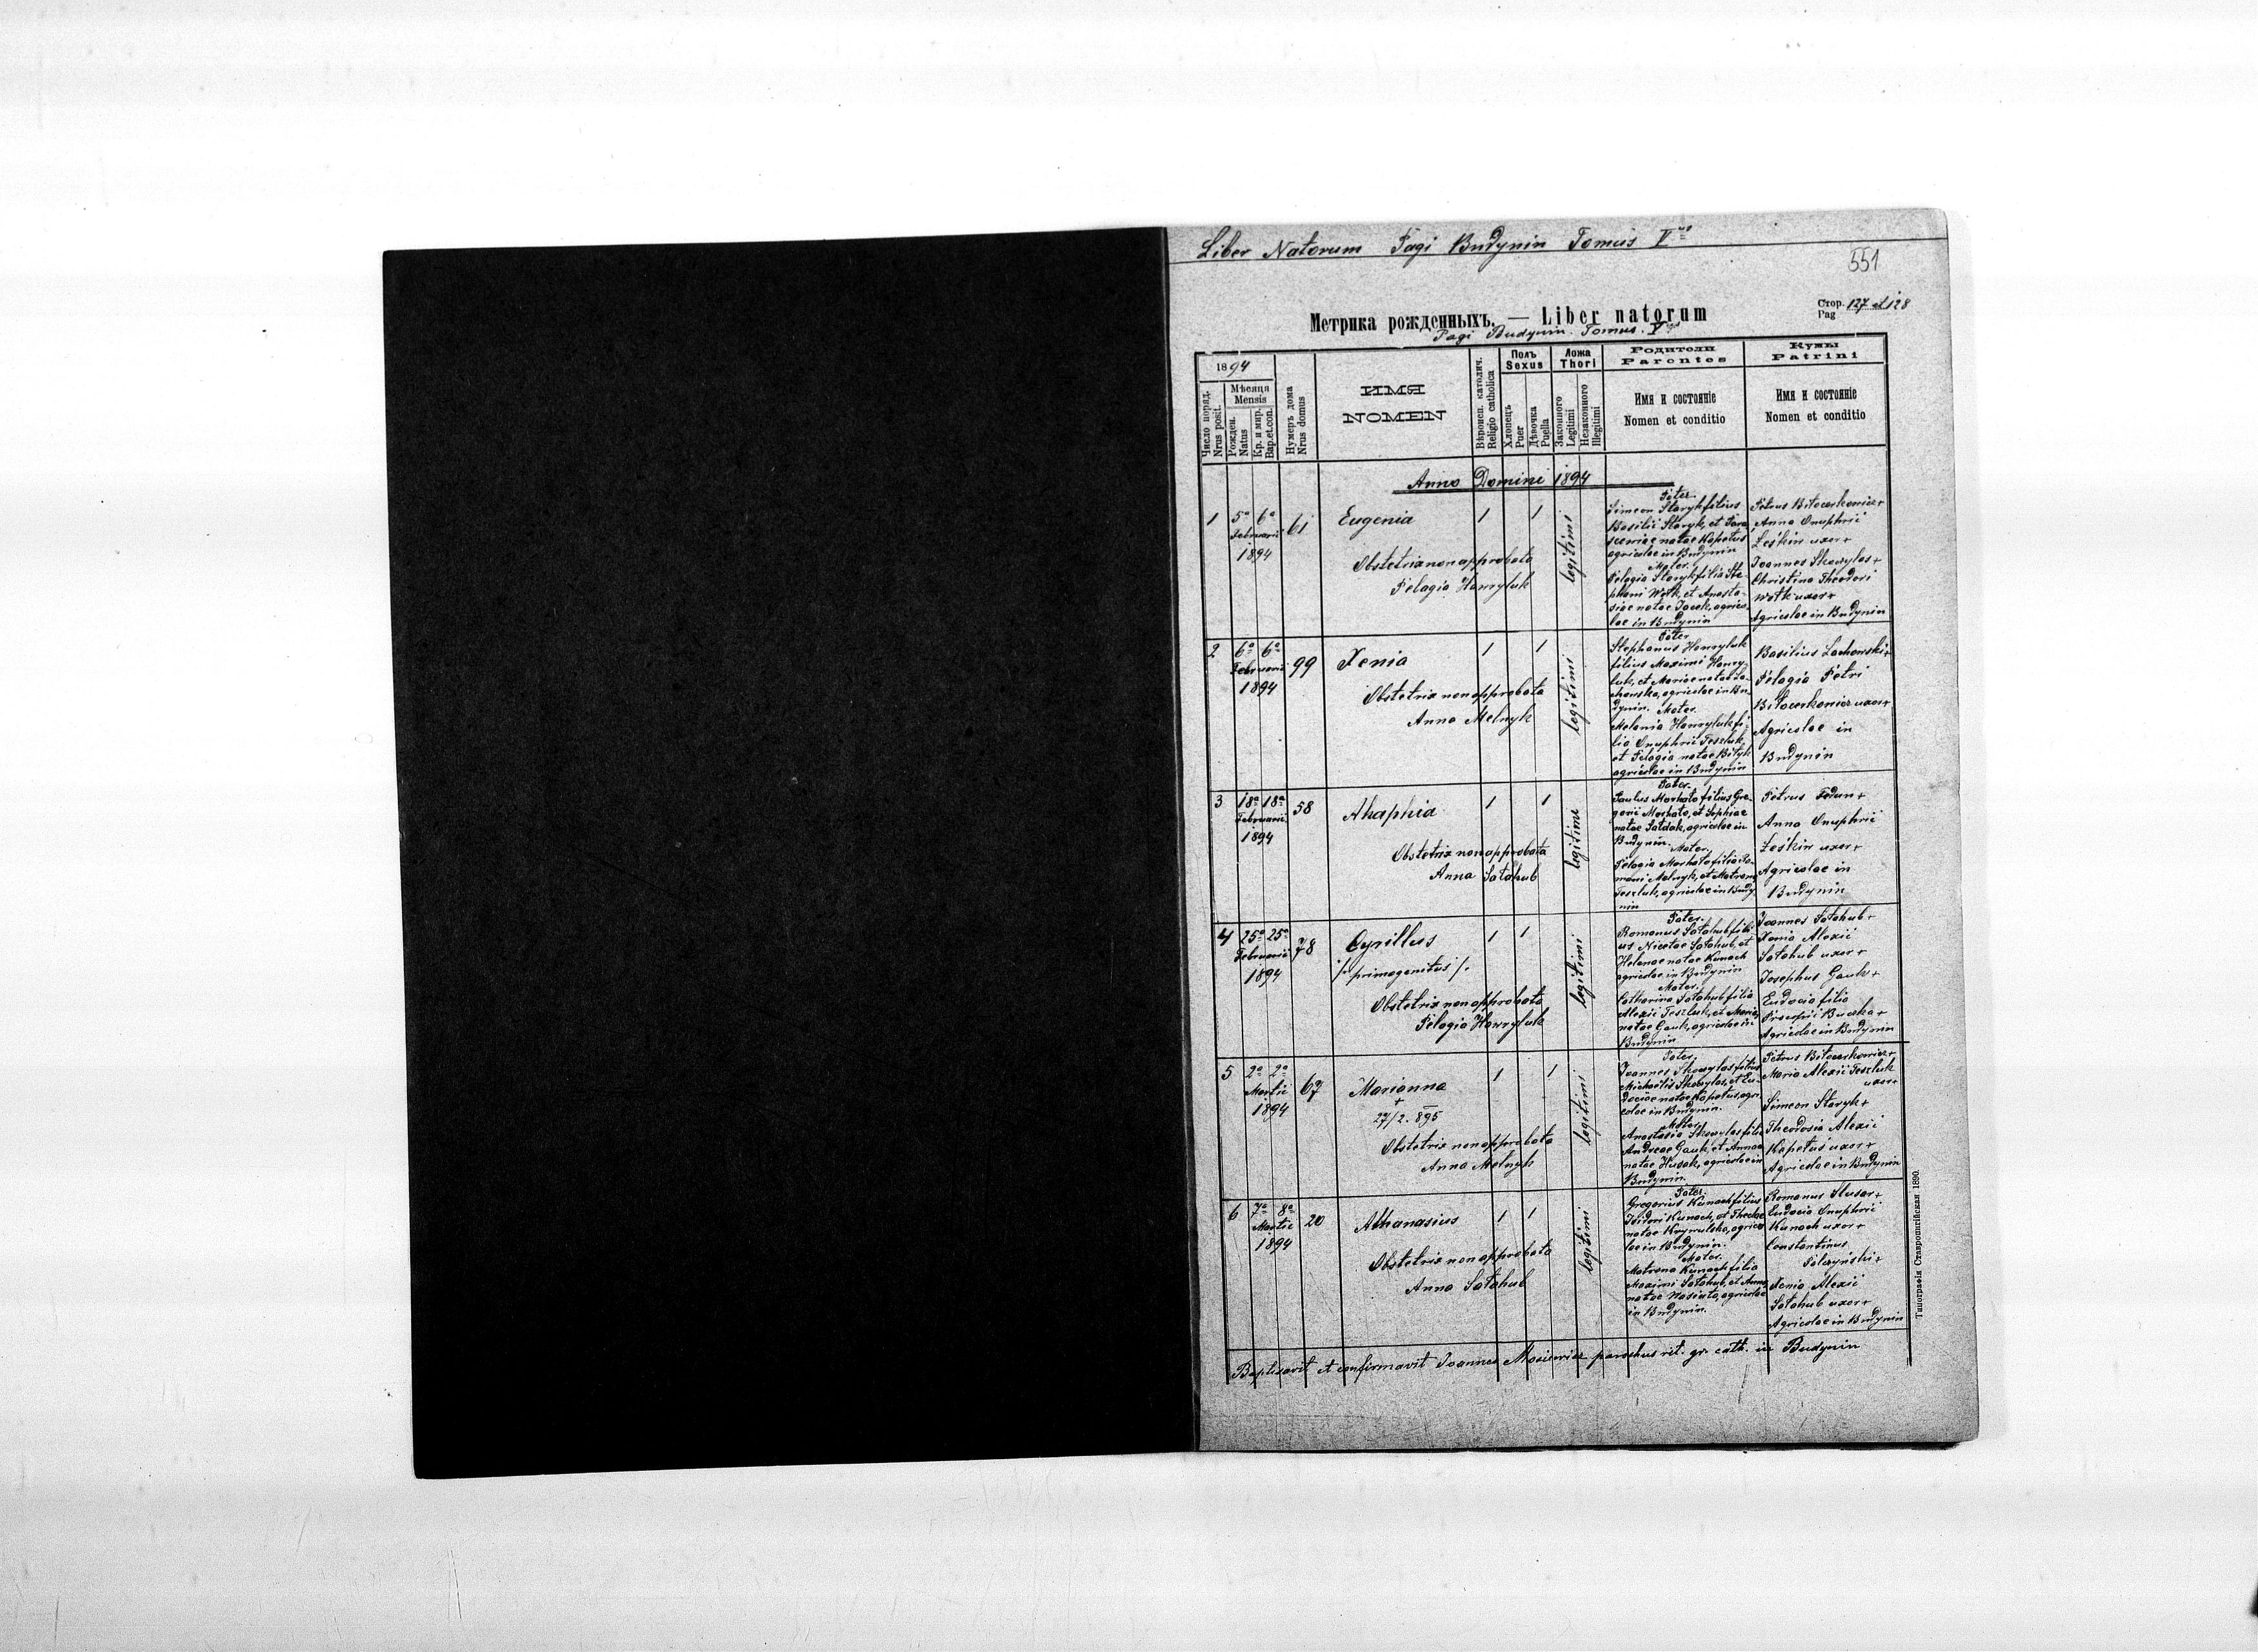 Liber Natorum Pagi Budynin Tomus V
551
Стор. 127 et 128
Pag
Метрика рожденныхъ. — Liber natorum
Pagi Budynin. Tomus. V
1894
Мѣсяца
Mensis
Число поряд.
Nrus posit.
Рожден.
Natus
Кр. и мир.
Bap.et.con.
Нумеръ дома
Nrus domus
ИМЯ
NOMEN
Вѣроисп. католич.
Religio catholica
Полъ
Sexus
Хлопецъ
Puer
Дѣвочка
Puella
Ложа
Thori
Законного
Legitimi
Незаконного
Illegitimi
Родители
Parentes
Имя и состояніе
Nomen et conditio
Кумы
Patrini
Имя и состояніе
Nomen et conditio
Anno Domini 1894
1
5ª 6ª
Februarii
1894
61
Eugenia
Obstetrix non approbata
Pelagia Hawryluk
1
1
legitimi
Pater.
Simeon Staryk filius
Basilii Staryk, et Para
sceviae natae Kapetus
agricolae in Budynin
Mater.
Pelagia Staryk filia Ste-
phani Wołk, et Anasta-
siae natae Jacek, agrico
lae in Budynin
Petrus Biłocerkowicz +
Anna Onuphrii
Leśkin uxor +
Joannes Skowylas +
Christina Theodori
Wołk uxor +
Agricolae in Budynin
2
6ª 6ª
Februarii
1894
99
Xenia
Obstetrix non approbata
Anna Melnyk
1
1
legitimi
Pater
Stephanus Hawryluk
filius Maximi Hawry-
luk, et Mariae natae La-
chowska, agricolae in Bu
dynin. Mater.
Melania Hawryluk fi-
lia Onuphrii Teszluk,
et Pelagia natae Biłyk
agricolae in Budynin
Basilius Lachowski +
Pelagia Petri
Biłocerkowicz uxor +
Agricolae in
Budynin
3
18ª 18ª
Februarii
1894
58
Ahaphia
Obstetrix non approbata
Anna Sałahub
1
1
legitimi
Pater.
Paulus Markato filius Gre-
gorii Markato, et Sophiae
natae Sałdak, agricolae in
Budynin.
Mater.
Pelagia Markato filia Ro-
mani Melnyk, et Matrona
Teszluk, agricolae in Budy
nin
Petrus Fedun +
Anna Onuphrii
Leśkin uxor +
Agricolae in
Budynin
4
25ª 25ª
Februarii
1894
78
Cyrillus
/: primogenitus :/.
Obstetrix non approbata
Pelagia Hawryluk
1
1
legitimi
Pater.
Romanus Sałahub fili-
us Nicolae Sałahub, et
Helenae natae Kunach
agricolae in Budynin
Mater.
Catharina Sałahub filia
Alexii Teszluk, et Maria
natae Gauk, agricolae in
Budynin
Joannes Sałahub +
Xenia Alexii
Sałahub uxor +
Josephus Gauk +
Eudocia filia
Agricolae in Budynin
5
2ª 2ª
Martii
1894
67
Marianna
+
27/2. 895
Obstetrix non approbata
Anna Melnyk
1
1
legitimi
Pater.
Joannes Skowylas filius
Michaelis Skowylas, et Eu-
dociae natae Kapetus, agri-
colae in Budynin.
Mater.
Anastasia Skowylas filia
Andreae Gauk, et Annae
natae Husak, agricolae in
Budynin.
Petrus Biłocerkowicz +
Maria Alexii Teszluk
uxor +
Simeon Staryk +
Theodosia Alexii
Kapetus uxor +
Agricolae in Budynin
6
7ª 8ª
Martii
1894
20
Athanasius
Obstetrix non approbata
Anna Sałahub
1
1
legitimi
Pater.
Gregorius Kunach filius
Isidori Kunach, et Theclae
natae Krywulska, agrico
lae in Budynin.
Mater.
Matrona Kunach filia
Maximi Sałahub, et Anna
natae, agricolae
in Budynin.
Romanus Slusar +
Eudocia Onuphrii
Kunach uxor +
Constantinus
Polczyński +
Xenia Alexii
Sałahub uxor +
Agricolae in Budynin
Baptisavit et confirmavit Joannes Mosiewicz parochus rit. gr. cath. in Budynin
Типографія Ставропигійская 1890.